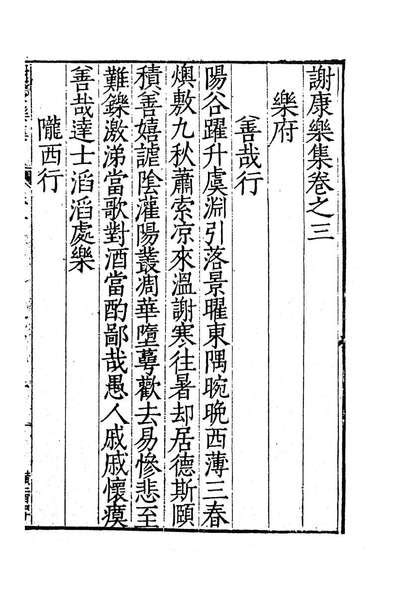 謝康樂集卷之三
樂府
善哉行
陽谷躍升虞淵引落景曜東隅晼晩西薄三春
燠敷九秋蕭索凉來溫謝寒往暑却居德斯頤
積善嬉謔陰灌陽叢凋華墮萼歡去易慘悲至
難鑠激涕當歌對酒當酌鄙哉愚人戚戚懷瘼
善哉達士滔滔處樂
隴西行